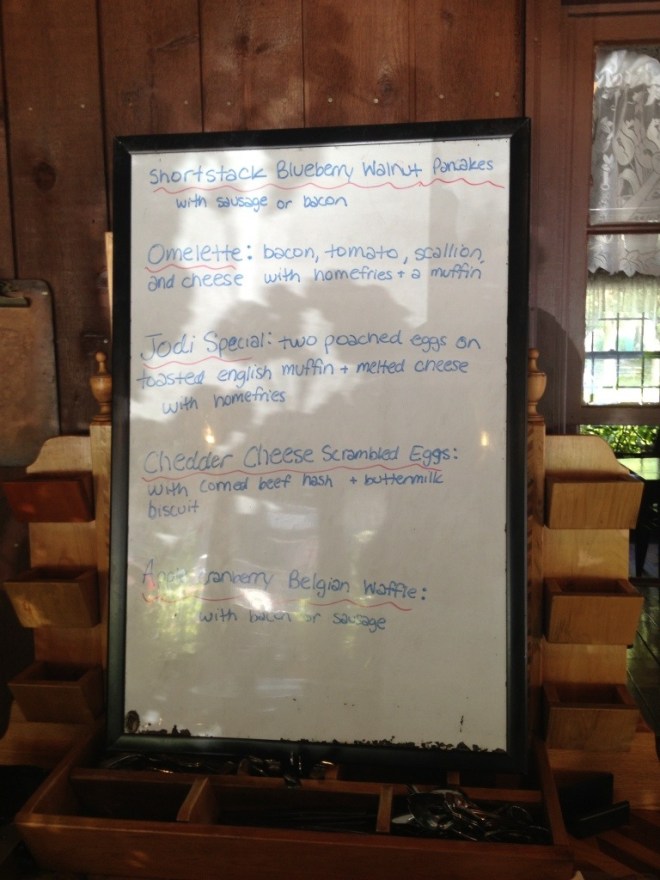 Shortstack Blueberry Walnut Pancakes
with sausage or bacon
Omelette: bacon, tomato, scallion,
and cheese with homefries + a muffin
Jodi Special: two poached eggs on
toasted english muffin + melted cheese
with homefries
Chedder Cheese Scrambled Eggs:
with corned beef hash + buttermilk
biscuit
Belgian Waffle:
with bacon or sausage